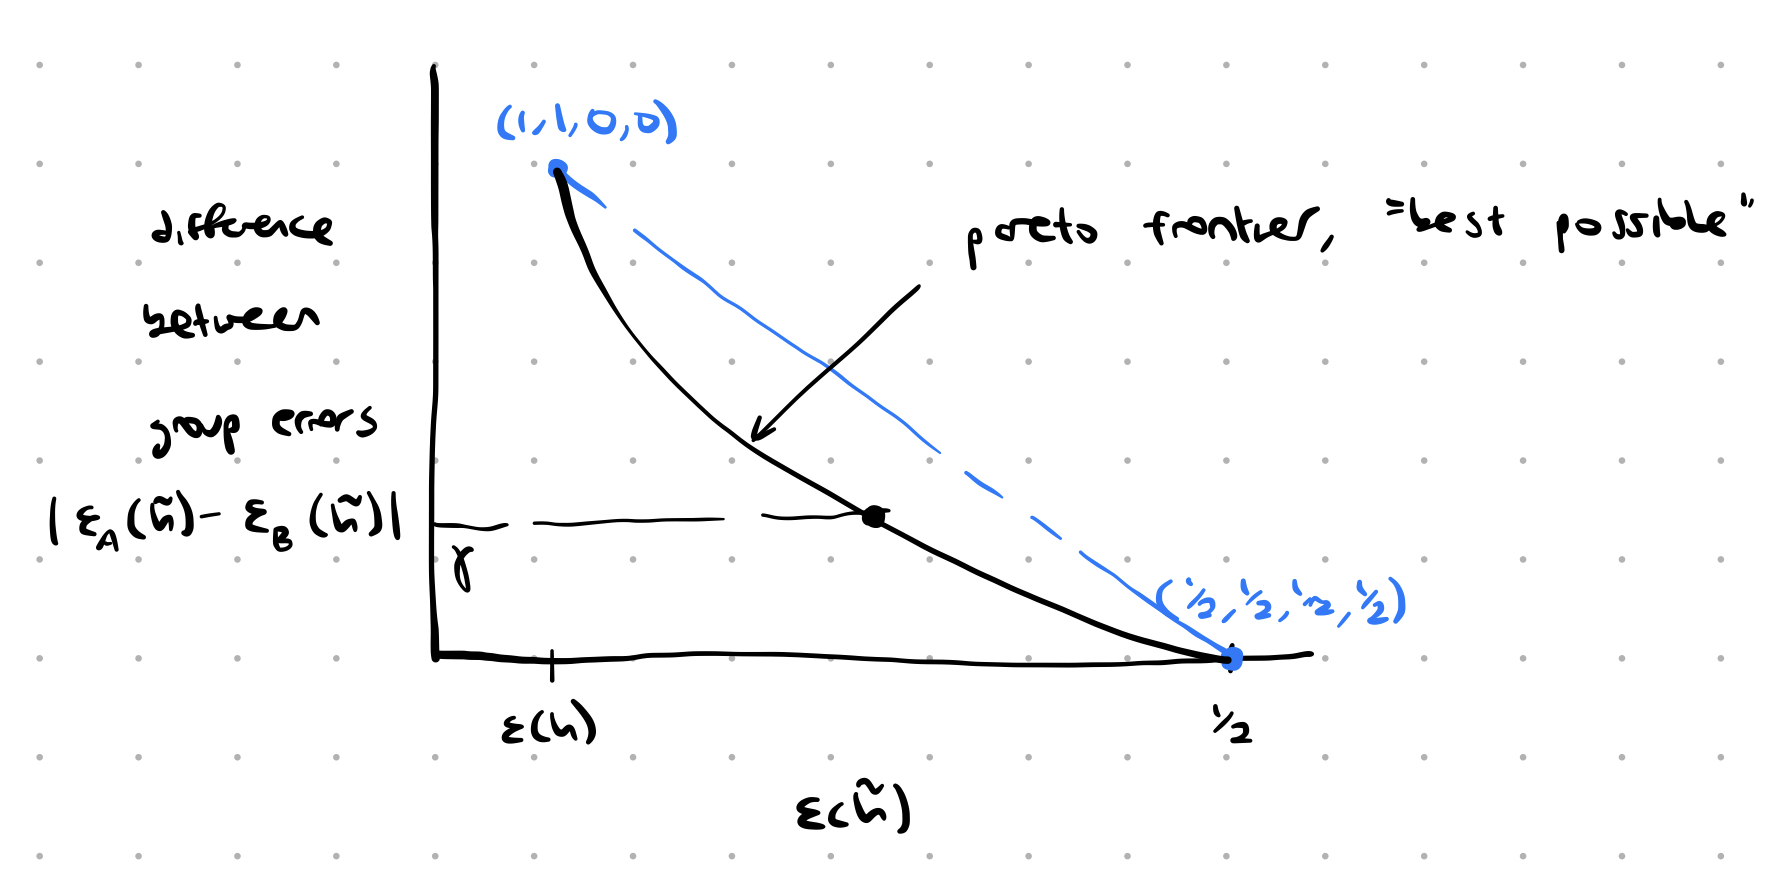 (1,1,0,0)
difference
between
group errors
| ε_A(h̃) - ε_B(h̃) |
pareto frontier, "best possible"
γ
(1/2, 1/2, 1/2, 1/2)
ε(h)
1/2
ε(h̃)